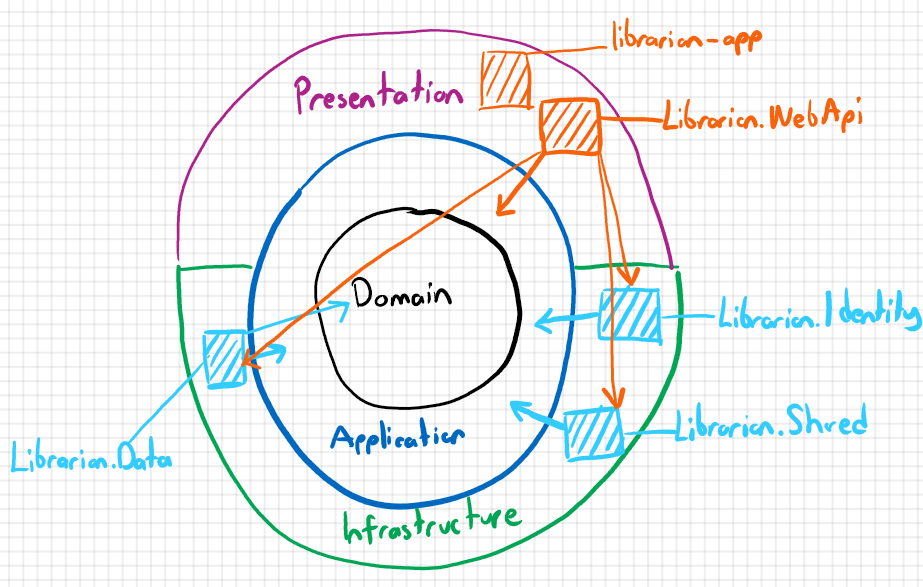 librarian-app
Presentation
Librarian.WebApi
Domain
Librarian.Identity
Librarian.Shred
Application
Librarian.Data
Infrastructure